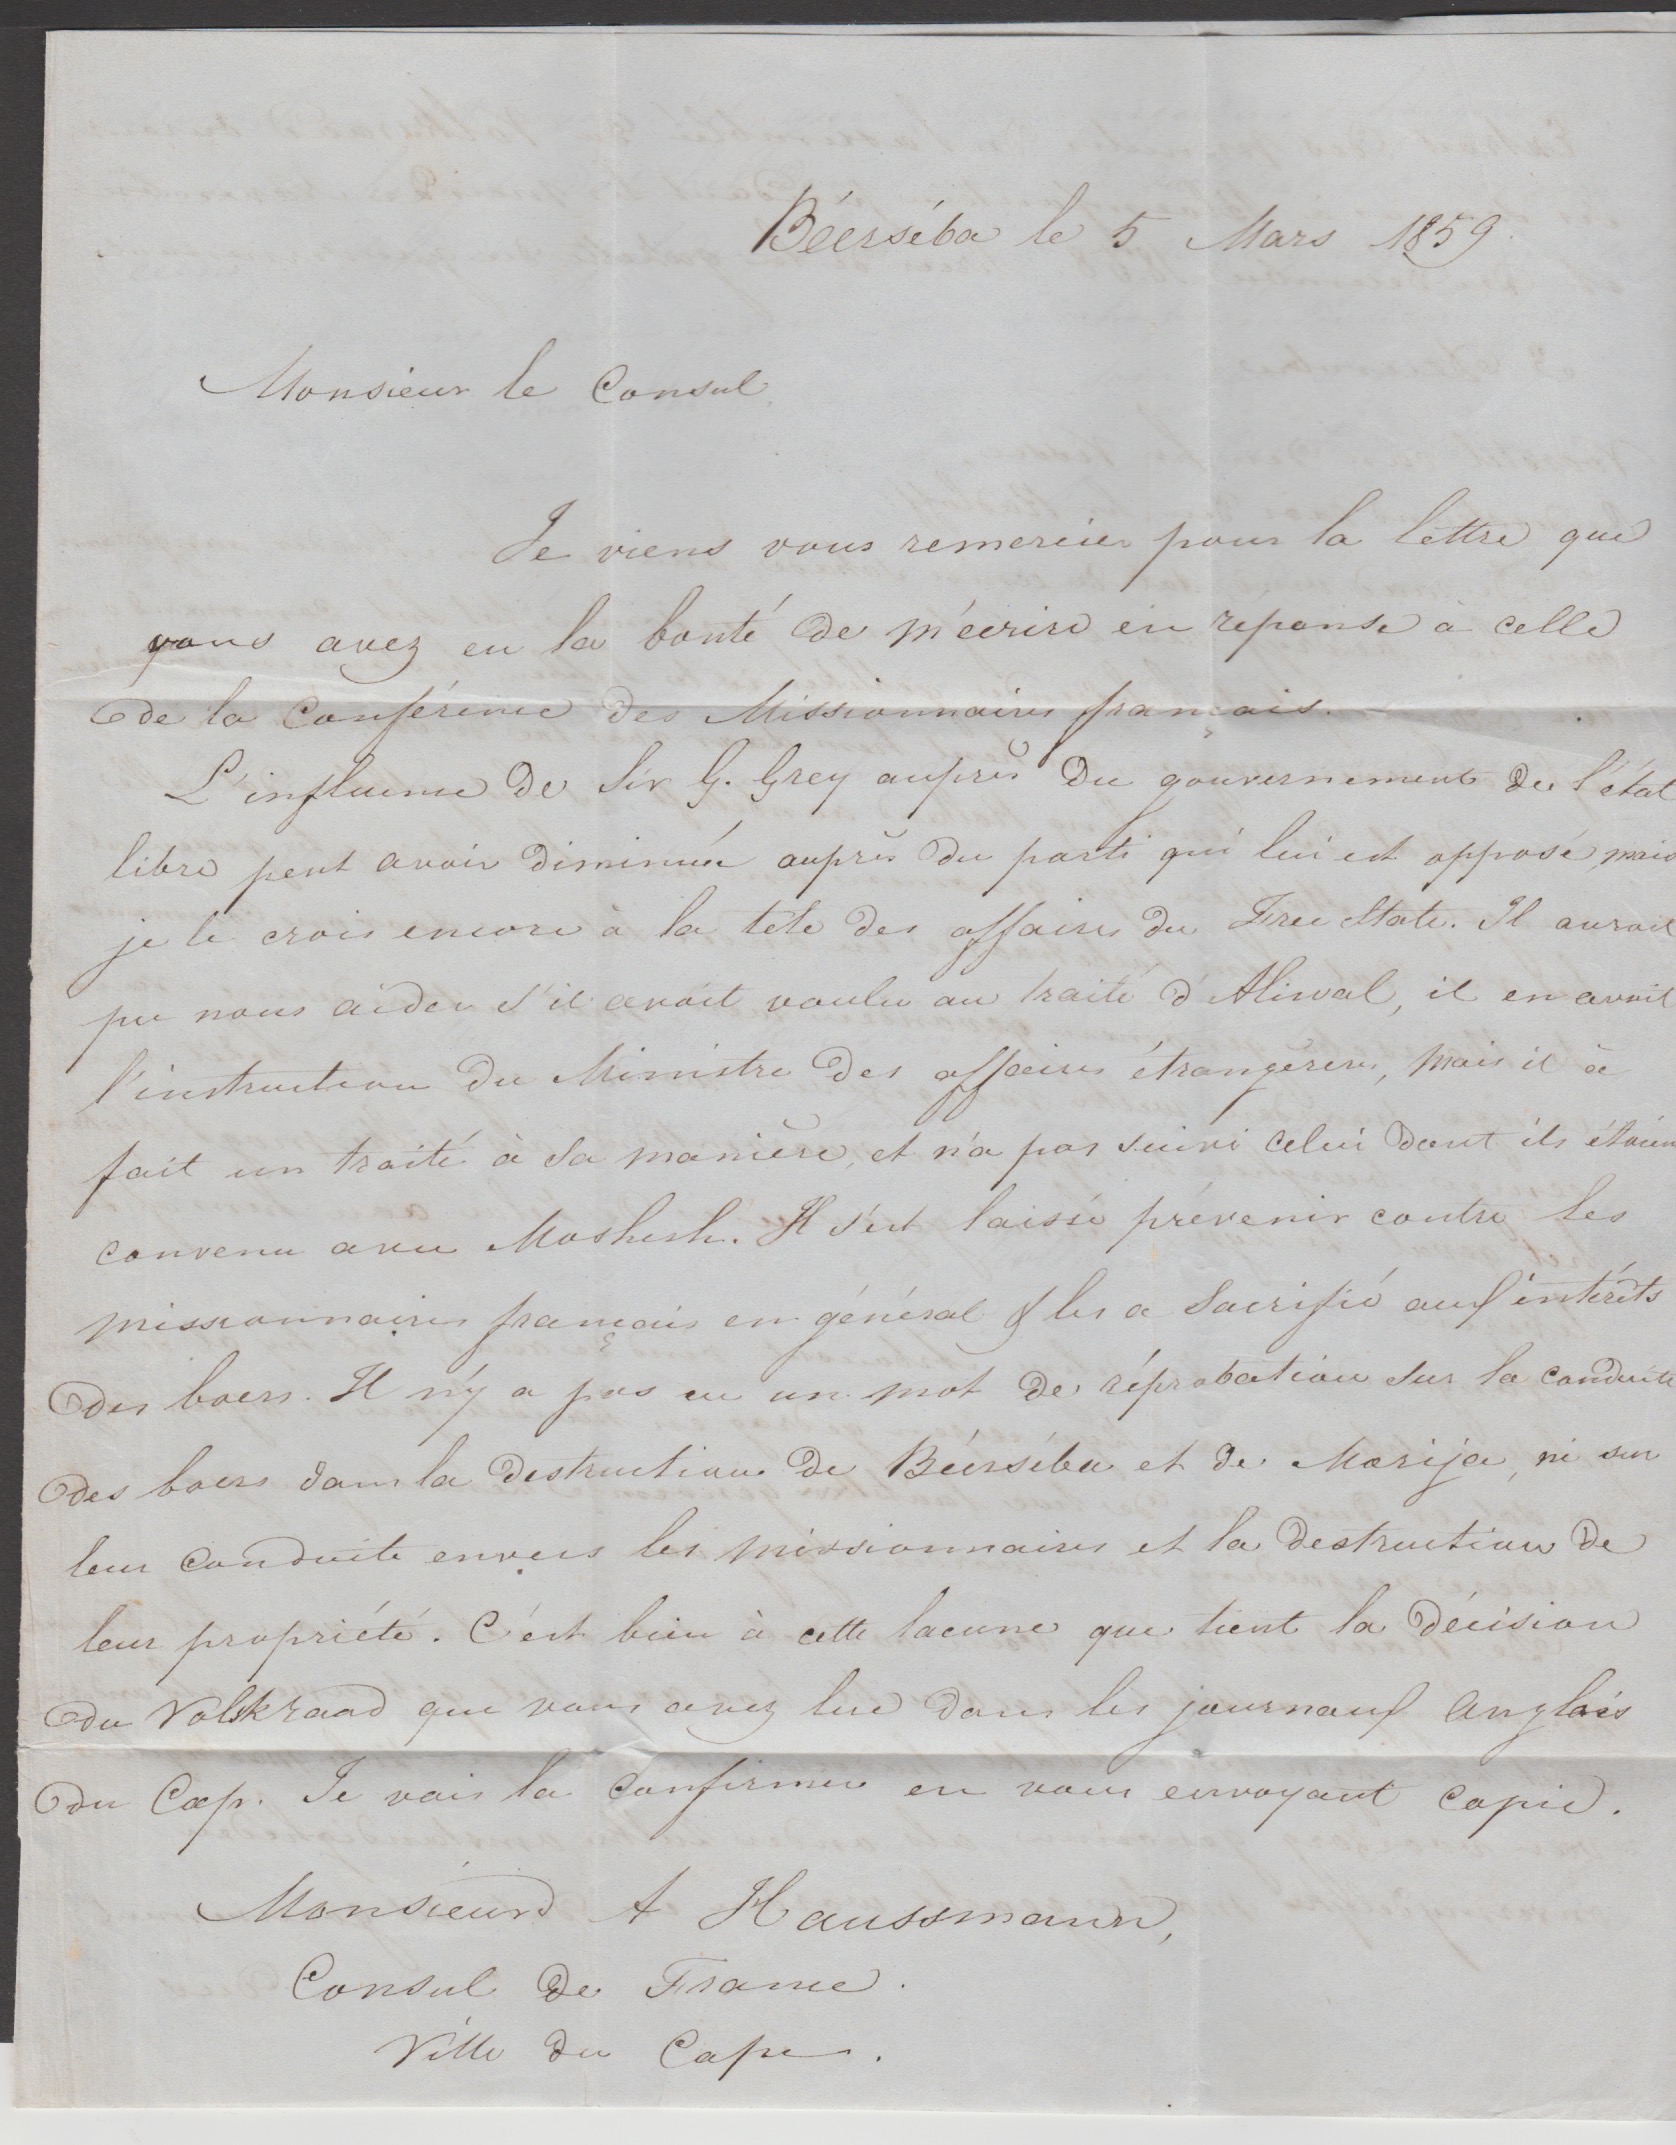 Béerséba le 5 Mars 1859.
Monsieur le Consul
Je viens vous remercier pour la lettre que
vous avez eu la bonté de m'écrire en réponse à celle
de la Conférence des Missionnaires français.
L'influence de Sir G. Grey auprès du gouvernement de l'état
libre peut avoir diminuée auprès du parti qui lui est opposé, mais
je le crois encore à la tête des affaires du Free State. Il auroit
pu nous aider s'il avoit voulu au traité d'Aliwal, il en avoit
l'instruction du Ministre des affaires étrangères, mais il à
fait un traité à sa manière, et n'a pas suivi celui dont ils étoient
convenu avec Moshesh. Il s'est laissé prévenir contre les
missionnaires français en général & les a sacrifié aux intérêts
des boers. Il n'y a pas eu un mot de réprobation sur la conduite
des boers dans la destruction de Béerséba et de Morija, ni sur
leur conduite envers les missionnaires et la destruction de
leur propriété. C'est bien à cette lacune que tient la décision
du Volskraad que vous avez lue dans les journaux Anglais
du Cap. Je vais la confirmer en vous envoyant copie.
Monsieur A Haussmann,
Consul de France.
Ville du Cape.